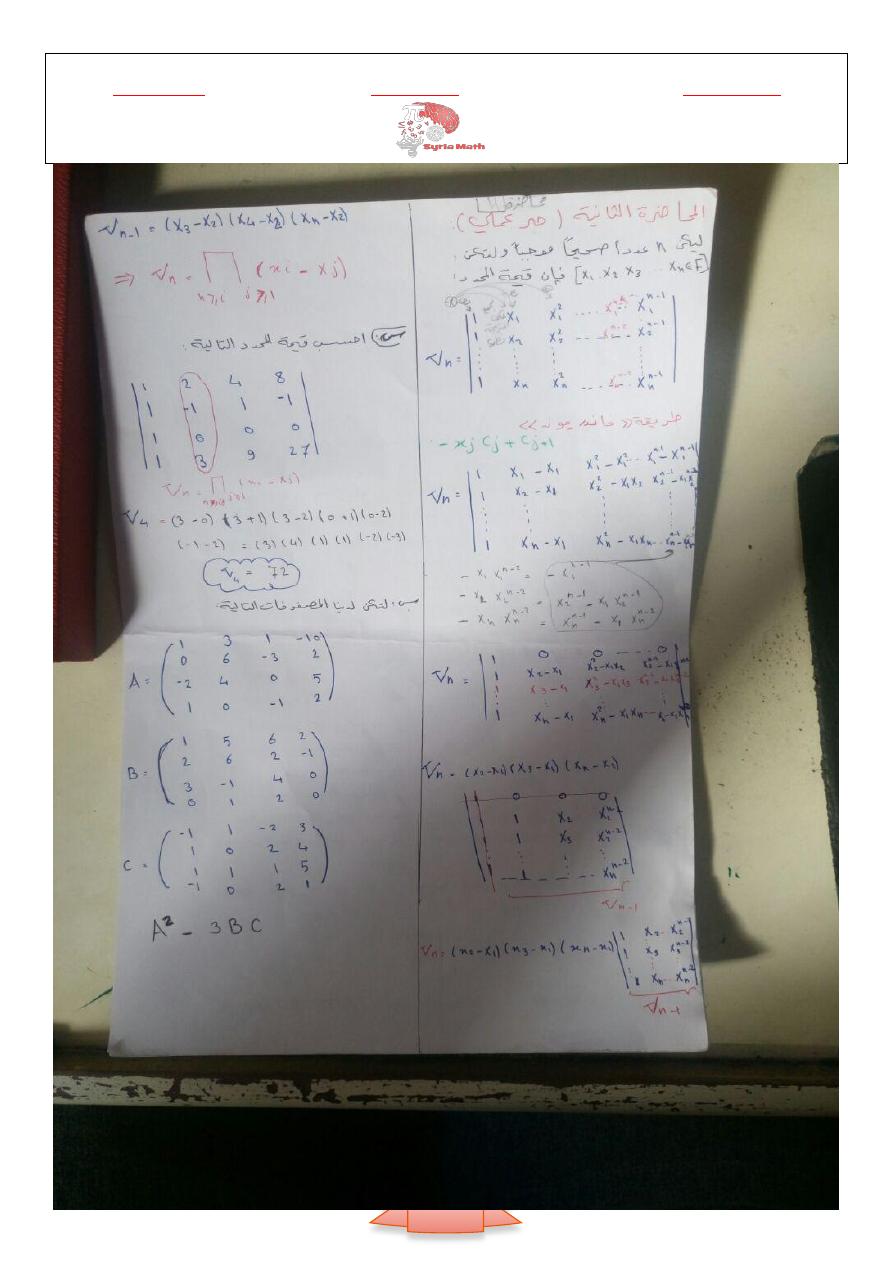 Syria Math
المحاضرة الثانية (جبر عملي):
ليكن n عدداً صحيحاً موجباً ولتكن
[x₁, x₂ x₃ ... xₙ ∈ F] فإن قيمة المحدد:
Vₙ = | 1 x₁ x₁² .... x₁ⁿ⁻² x₁ⁿ⁻¹
1 x₂ x₂² ... x₂ⁿ⁻² x₂ⁿ⁻¹
1 xₙ xₙ² ... xₙⁿ⁻² xₙⁿ⁻¹ |
طريقة >>
- xj Cj + Cj+1
Vₙ = | 1 x₁ - x₁ x₁² - x₁² ... x₁ⁿ⁻¹ - x₁ⁿ⁻¹
1 x₂ - x₁ x₂² - x₁x₂
1 xₙ - x₁ xₙ² - x₁xₙ ... |
- x₁ x₁ⁿ⁻² = - x₁ⁿ⁻¹
- x₁ x₂ⁿ⁻² = x₂ⁿ⁻¹ - x₁ x₂ⁿ⁻²
- x₁ xₙⁿ⁻² = xₙⁿ⁻¹ - x₁ xₙⁿ⁻²
Vₙ = | 1 0 0 ... 0
1 x₂-x₁ x₂²-x₁x₂
1 x₃-x₁ x₃²-x₁x₃
1 xₙ-x₁ xₙ²-x₁xₙ |
Vₙ = (x₂-x₁)(x₃-x₁)(xₙ-x₁)
0 0 0
1 x₂ x₂ⁿ⁻²
1 x₃ x₃ⁿ⁻²
1 - - - - xₙⁿ⁻²
Vₙ₋₁
Vₙ = (x₂-x₁)(x₃-x₁)(xₙ-x₁) | 1 x₂ .. x₂ⁿ⁻²
1 x₃ x₃ⁿ⁻²
1 xₙ ... xₙⁿ⁻² |
Vₙ₋₁
Vₙ₋₁ = (x₃-x₂)(x₄-x₂)(xₙ-x₂)
⇒ Vₙ = ∏ (xi - xj)
n≥i j≥1
س: احسب قيمة المحدد التالية:
| 1 2 4 8
1 -1 1 -1
1 0 0 0
1 3 9 27 |
Vₙ = ∏ (xi - xj)
V₄ = (3-0)(3+1)(3-2)(0+1)(0-2)
(-1-2) = (3)(4)(1)(1)(-2)(-3)
V₄ = 72
س: لتكن لدينا المصفوفات التالية:
A = ( 1 3 1 -10
0 6 -3 2
-2 4 0 5
1 0 -1 2 )
B = ( 1 5 6 2
2 6 2 -1
3 -1 4 0
0 1 2 0 )
C = ( -1 1 -2 3
1 0 2 4
1 1 1 5
-1 0 2 1 )
A² - 3BC